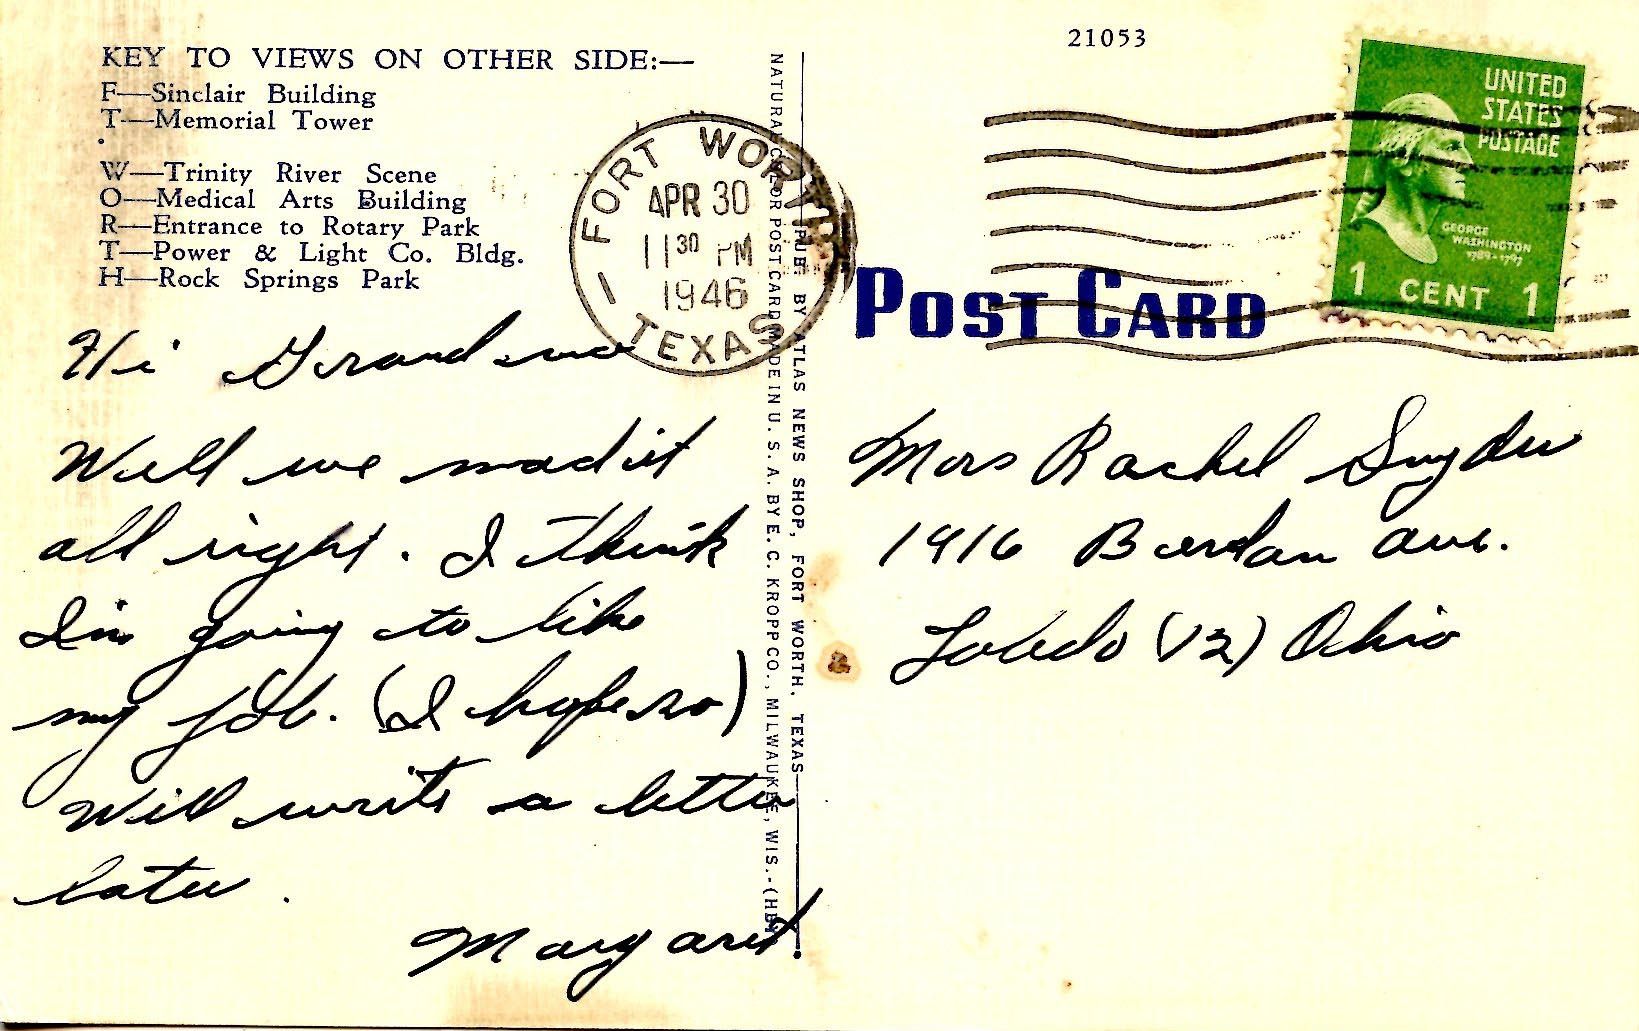 21053
KEY TO VIEWS ON OTHER SIDE:—
F—Sinclair Building
T—Memorial Tower
W—Trinity River Scene
O—Medical Arts Building
R—Entrance to Rotary Park
T—Power & Light Co. Bldg.
H—Rock Springs Park
FORT WORTH
APR 30
11 30 PM
1946
1 TEXAS
UNITED
STATES
POSTAGE
GEORGE
WASHINGTON
1789-1797
1 CENT 1
POST CARD
PUB. BY ATLAS NEWS SHOP, FORT WORTH, TEXAS
NATURAL COLOR POST CARD MADE IN U. S. A. BY E. C. KROPP CO., MILWAUKEE, WIS.
Hi Grandma
Well we mad it
all right. I think
I'm going to like
my job. (I hope so)
Will write a letter
later.
Margaret.
Mrs Rachel Snyder
1916 Berdan Ave.
Toledo (12) Ohio